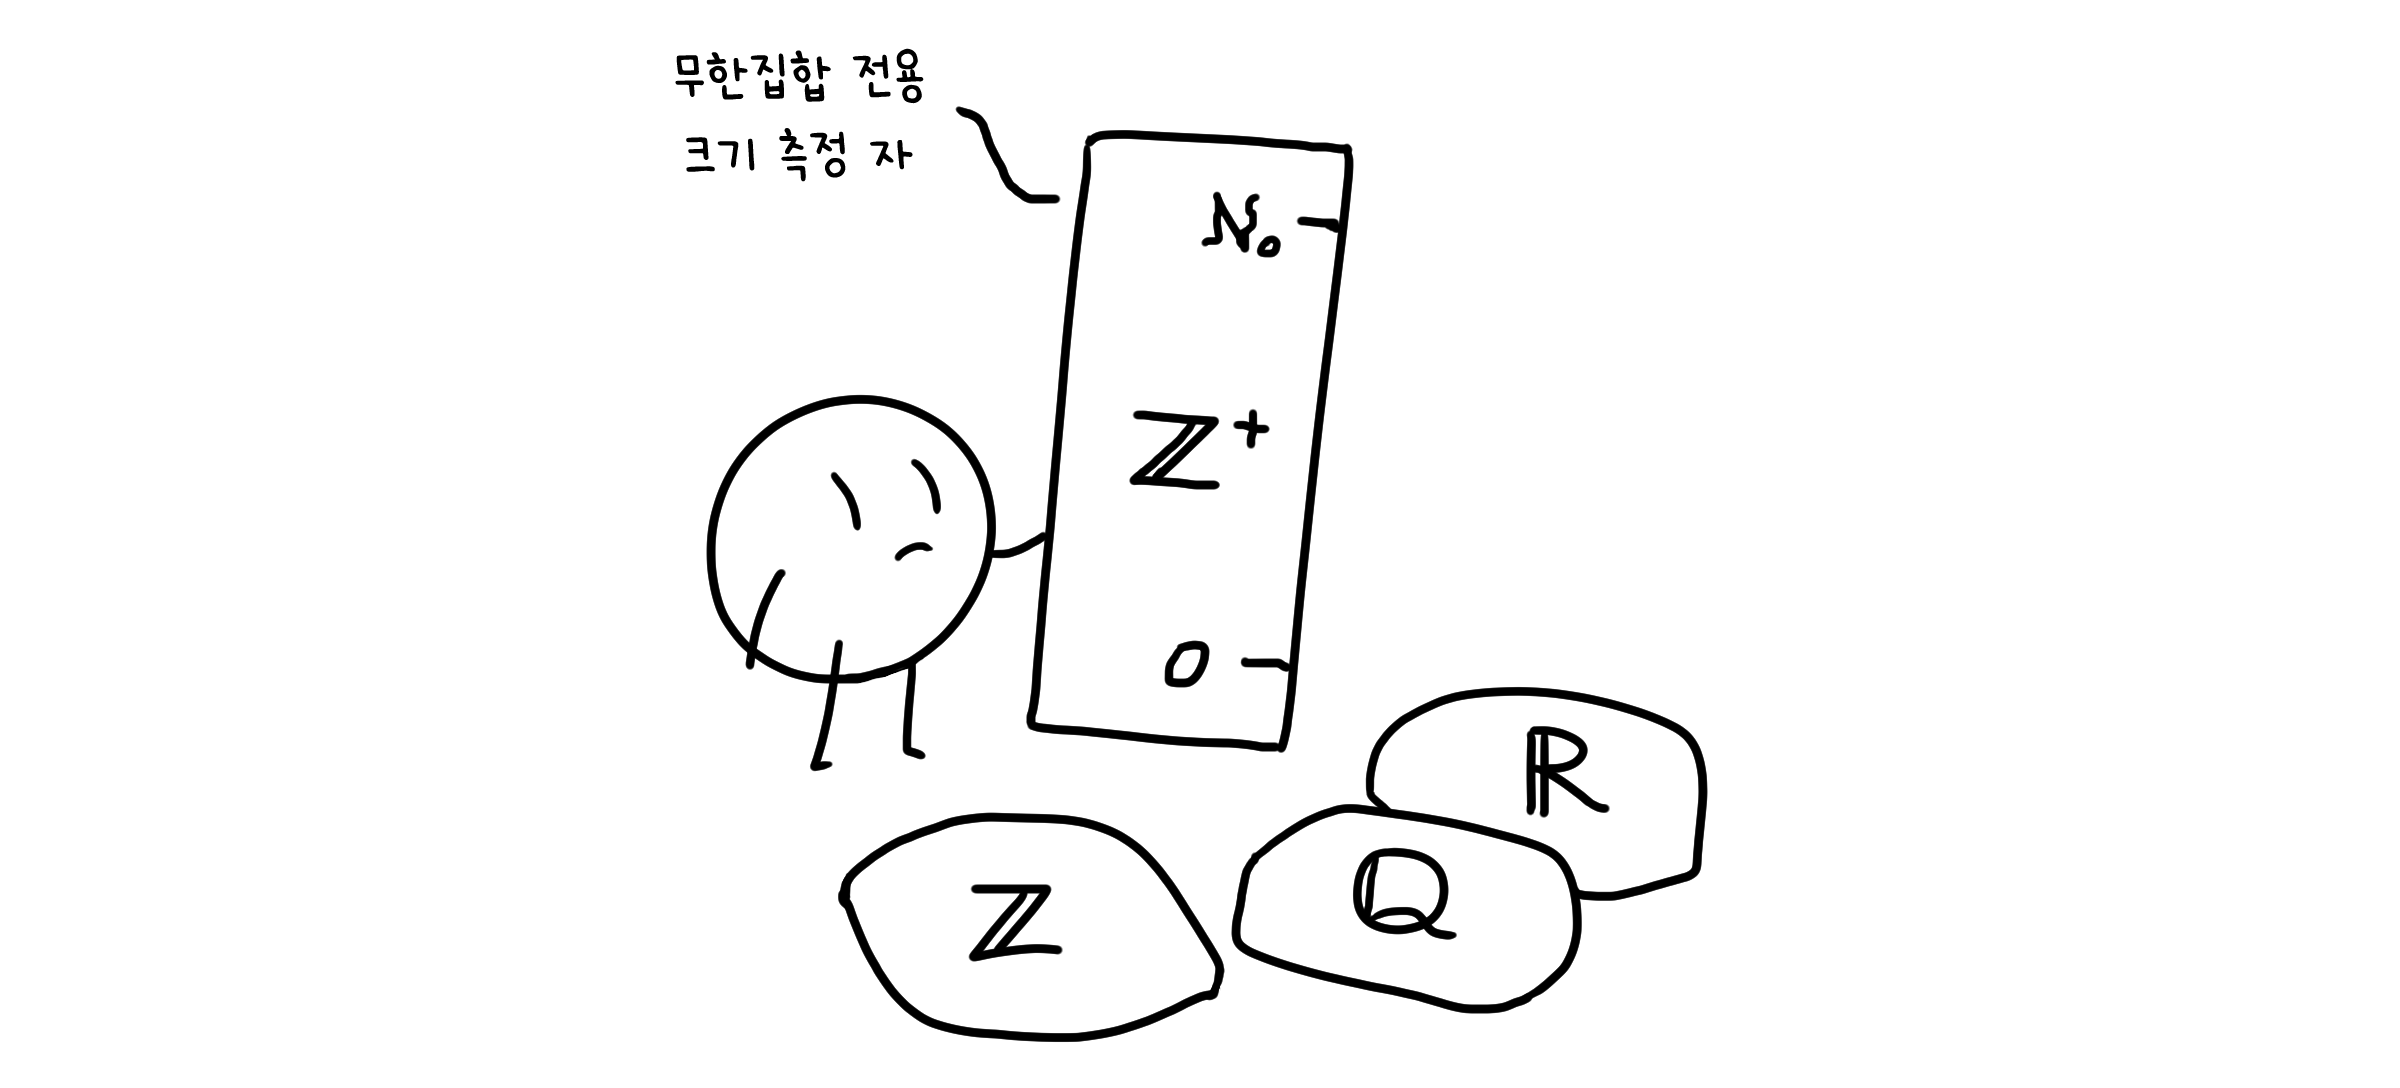 무한집합 전용
크기 측정 자
ℵ₀
ℤ⁺
0
ℝ
ℚ
ℤ